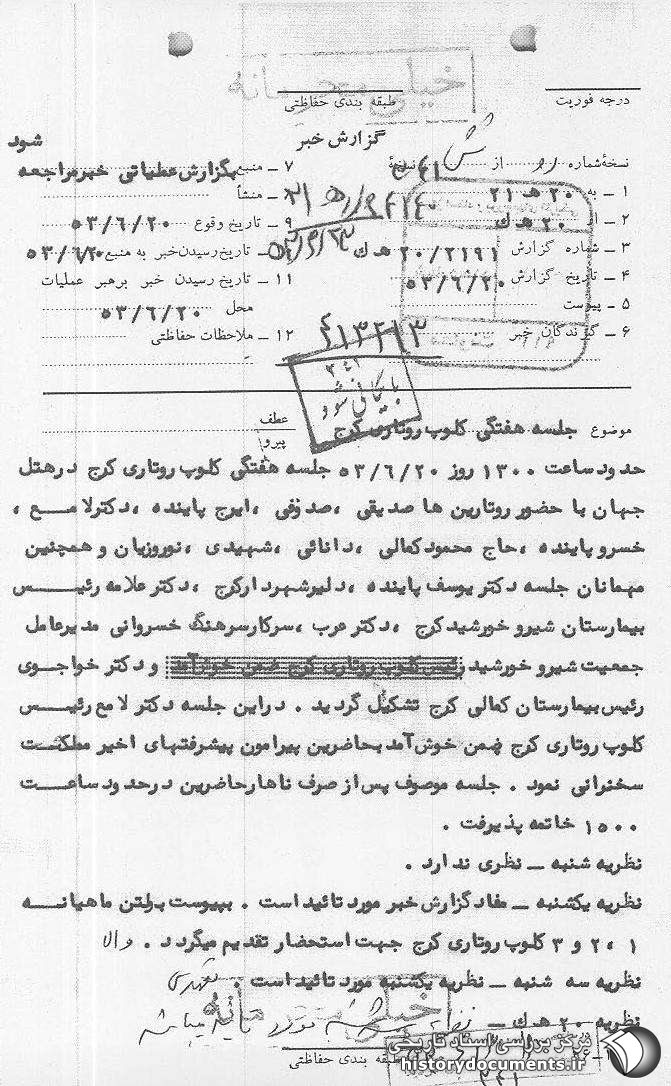 خیلی محرمانه
درجه فوریت
طبقه بندی حفاظتی
گزارش خبر
نسخهٔ شماره از نسخهٔ
۱ ـ به ۲۰ هـ ۲۱
۲ ـ از ۲۰ هـ ك
۳ ـ شماره گزارش ۲۰/۲۱۹۱ هـ ك
۴ ـ تاریخ گزارش ۵۳/۶/۲۰
۵ ـ پیوست
۶ ـ گیرندگان خبر
شود
۷ ـ منبع بگزارش عملیاتی خبر مراجعه
۸ ـ منشأ
۹ ـ تاریخ وقوع ۵۳/۶/۲۰
تاریخ رسیدن خبر به منبع ۵۳/۶/۲۰
۱۱ ـ تاریخ رسیدن خبر برهبر عملیات
محل ۵۳/۶/۲۰
۱۲ ـ ملاحظات حفاظتی
۴۱۳۲۱۳
بایگانی شود
موضوع جلسه هفتگی کلوپ روتاری کرج
عطف
پیرو
حدود ساعت ۱۳۰۰ روز ۵۳/۶/۲۰ جلسه هفتگی کلوپ روتاری کرج در هتل
جهان با حضور روتارین ها صدیقی ، صدوفی ، ایرج پاینده ، دکتر لامع ،
خسرو پاینده ، حاج محمود کمالی ، دانائی ، شهیدی ، نوروزیان و همچنین
مهمانان جلسه دکتر یوسف پاینده ، دلیر شهردار کرج ، دکتر علامه رئیس
بیمارستان شیرو خورشید کرج ، دکتر عرب ، سرکار سرهنگ خسروانی مدیرعامل
جمعیت شیرو خورشید رئیس کلوپ روتاری کرج ضمن خوش آمد و دکتر خواجوی
رئیس بیمارستان کمالی کرج تشکیل گردید . در این جلسه دکتر لامع رئیس
کلوپ روتاری کرج ضمن خوش آمد بحاضرین پیرامون پیشرفتهای اخیر مملکت
سخنرانی نمود . جلسه موصوف پس از صرف ناهار حاضرین در حدود ساعت
۱۵۰۰ خاتمه پذیرفت .
نظریه شنبه ـ نظری ندارد .
نظریه یکشنبه ـ مفاد گزارش خبر مورد تائید است . بپیوست بولتن ماهیانه
۱ ، ۲ و ۳ کلوپ روتاری کرج جهت استحضار تقدیم میگردد .
نظریه سه شنبه ـ نظریه یکشنبه مورد تائید است .
نظریه ۲۰ هـ ك ـ
خیلی محرمانه
طبقه بندی حفاظتی
مرکز بررسی اسناد تاریخی
historydocuments.ir